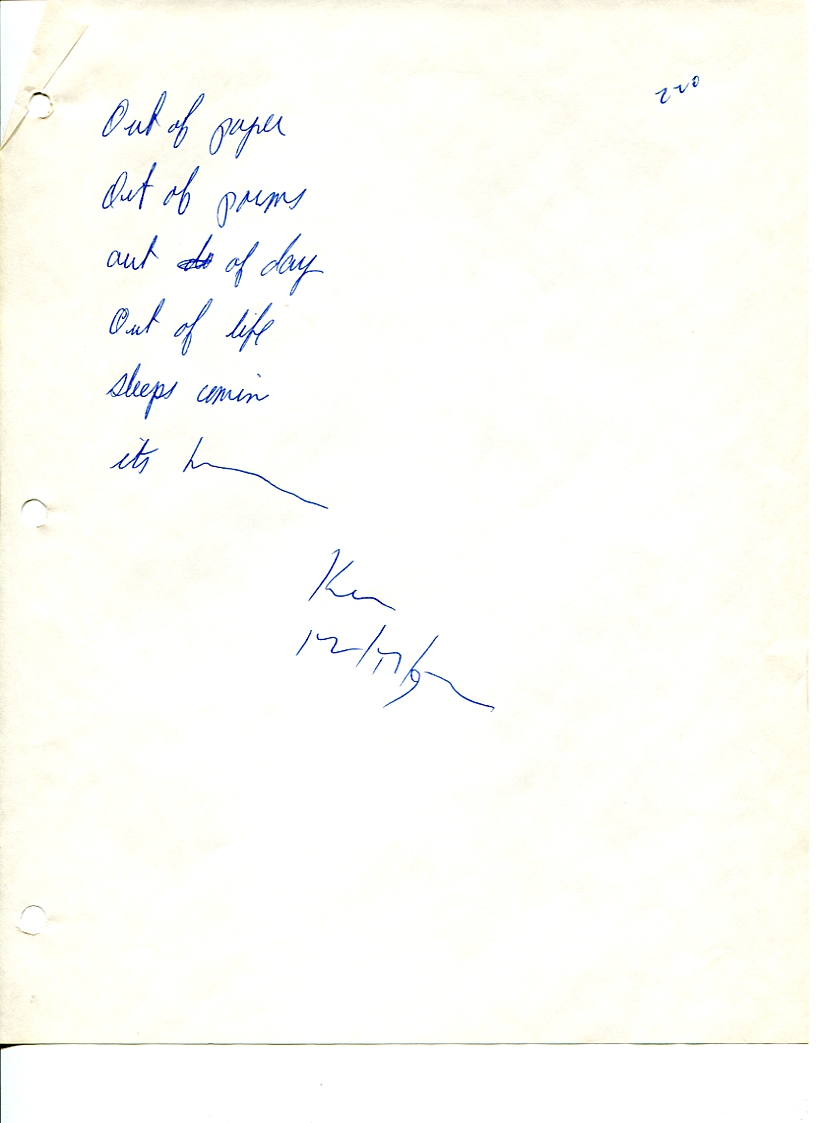 220
Out of paper
Out of poems
out of day
Out of life
sleeps comin
its
Ken
12/17/